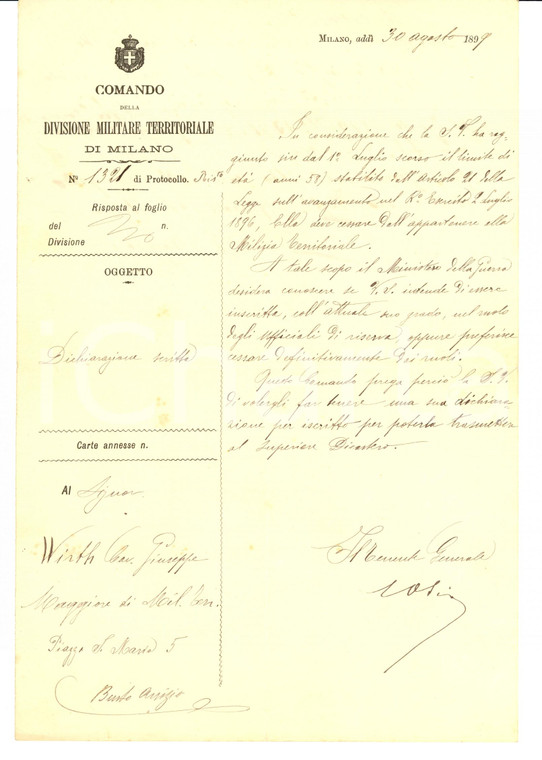 Milano, addì 30 agosto 1899
COMANDO
DELLA
DIVISIONE MILITARE TERRITORIALE
DI MILANO
N° 1321 di Protocollo.
Risposta al foglio
del n.
Divisione
OGGETTO
Dichiarazione scritta
Carte annesse n.
Al Signor
Wirth Cav. Giuseppe
Maggiore di Mil. Terr.
Piazza S. Maria 5
Busto Arsizio
In considerazione che la S. V. ha rag-
giunto sin dal 1° Luglio scorso il limite di
età (anni 58) stabilito dall'Articolo 21 della
Legge sull'avanzamento nel R.° Esercito 2 Luglio
1896, Ella deve cessare dall'appartenere alla
Milizia Territoriale.
A tale scopo il Ministero della Guerra
desidera conoscere se V. S. intende di essere
inscritta, coll'attuale suo grado, nel ruolo
degli Ufficiali di riserva, oppure preferisce
cessare definitivamente dai ruoli.
Questo Comando prega perciò la S. V.
di volergli far tenere una sua dichiara-
zione per iscritto per poterla trasmettere
al Superiore Dicastero.
Il Tenente Generale